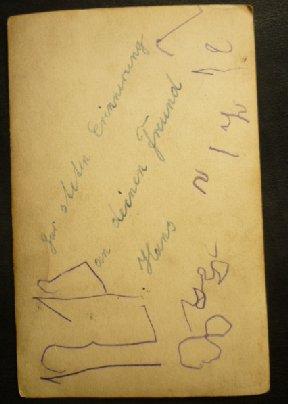 Zur steten Erinnerung
an deinen Freund
Hans